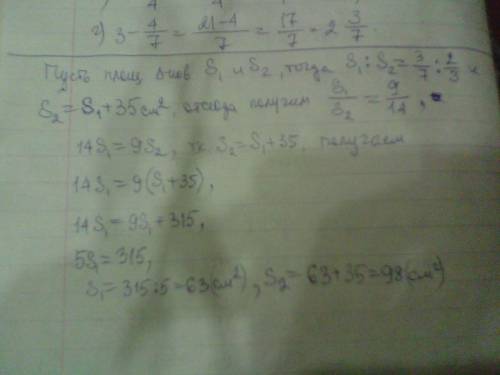 г) 3 - 4/7 = 21-4/7 = 17/7 = 2 3/7
Пусть площ Δ-ков S₁ и S₂, тогда S₁ : S₂ = 3/7 : 2/3 и
S₂ = S₁ + 35 см², отсюда получим S₁/S₂ = 9/14,
14S₁ = 9S₂, т.к. S₂ = S₁ + 35, получаем
14S₁ = 9(S₁ + 35),
14S₁ = 9S₁ + 315,
5S₁ = 315,
S₁ = 315:5 = 63 (см²), S₂ = 63 + 35 = 98 (см²)